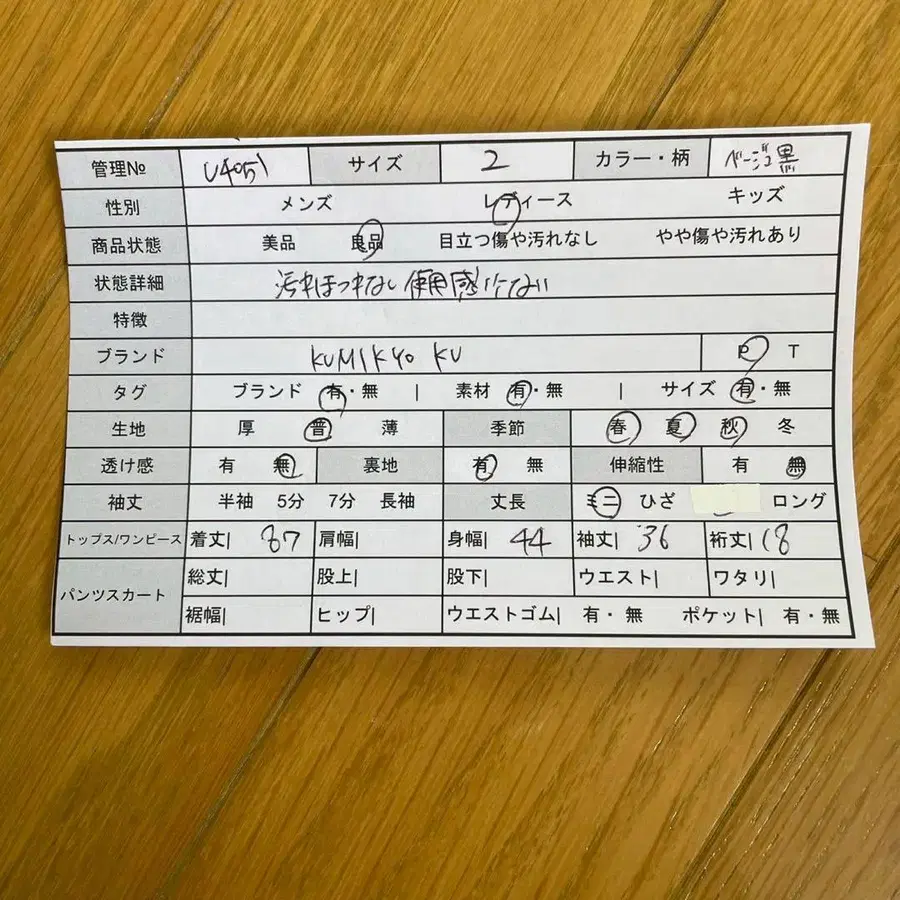 管理№ U4051 サイズ 2 カラー・柄 ベージュ黒
性別 メンズ レディース キッズ
商品状態 美品 良品 目立つ傷や汚れなし やや傷や汚れあり
状態詳細 汚れほつれなし 使用感少ない
特徴
ブランド KUMIKYO KU P T
タグ ブランド 有・無 | 素材 有・無 | サイズ 有・無
生地 厚 普 薄 季節 春 夏 秋 冬
透け感 有 無 裏地 有 無 伸縮性 有 無
袖丈 半袖 5分 7分 長袖 丈長 ミニ ひざ ロング
トップス/ワンピース 着丈| 87 肩幅| 身幅| 44 袖丈| 36 裄丈| 18
パンツスカート 総丈| 股上| 股下| ウエスト| ワタリ|
裾幅| ヒップ| ウエストゴム| 有・無 ポケット| 有・無